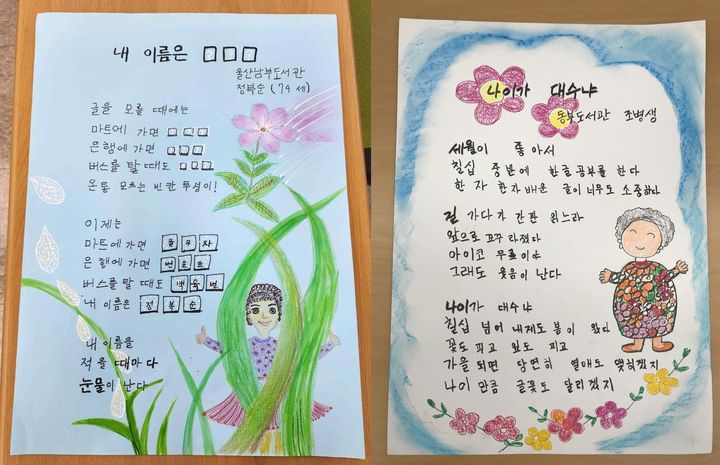 내 이름은 □□□
울산남부도서관
정복순 (74세)
글을 모를 때에는
마트에 가면 □□□
은행에 가면 □□□
버스를 탈 때도 □□□
온통 모르는 빈칸 투성이!
이제는
마트에 가면
은행에 가면 번호표
버스를 탈 때도
내 이름은 정복순
내 이름을
적을 때마다
눈물이 난다
나이가 대수냐
동부도서관 조병생
세월이 좋아서
칠십 중반에 한글공부를 한다
한 자 한자 배운 글이 너무도 소중하다
길 가다가 간판 읽느라
앞으로 꼬꾸라졌다
아이고 무릎이야
그래도 웃음이 난다
나이가 대수냐
칠십 넘어 내게도 봄이 왔다
꽃도 피고 잎도 피고
가을 되면 당연히 열매도 맺히겠지
나이 만큼 글꽃도 달리겠지